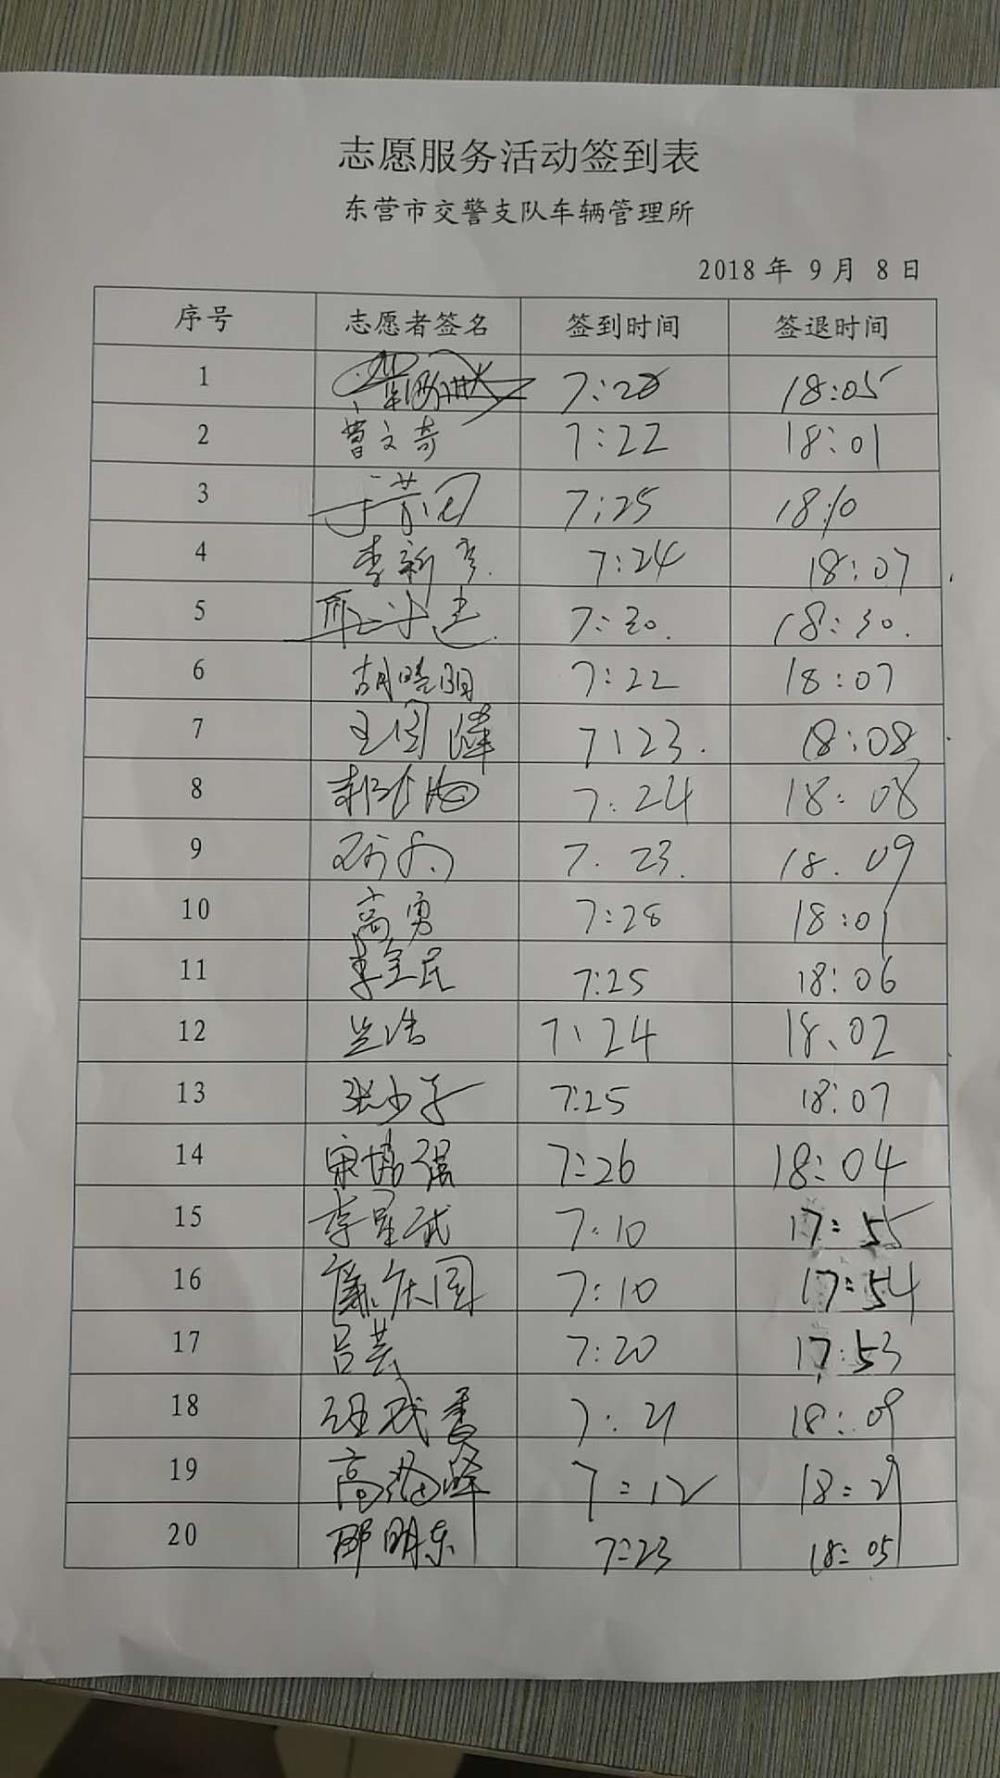 志愿服务活动签到表
东营市交警支队车辆管理所
2018 年 9 月 8 日
序号 志愿者签名 签到时间 签退时间
1 7:20 18:05
2 曹文奇 7:22 18:01
3 7:25 18:10
4 李新亮 7:24 18:07
5 7:30. 18:30.
6 胡晓明 7:22 18:07
7 王国 7:23. 18:08
8 7:24 18:08
9 7.23. 18.09
10 高勇 7:28 18:01
11 李全民 7:25 18:06
12 兰浩 7:24 18.02
13 张少 7:25 18:07
14 宋 强 7:26 18:04
15 李星 7:10 17:55
16 国 7:10 17:54
17 吕芸 7:20 17:53
18 7:21 18:09
19 高 峰 7:12 18:29
20 邵明东 7:23 18:05